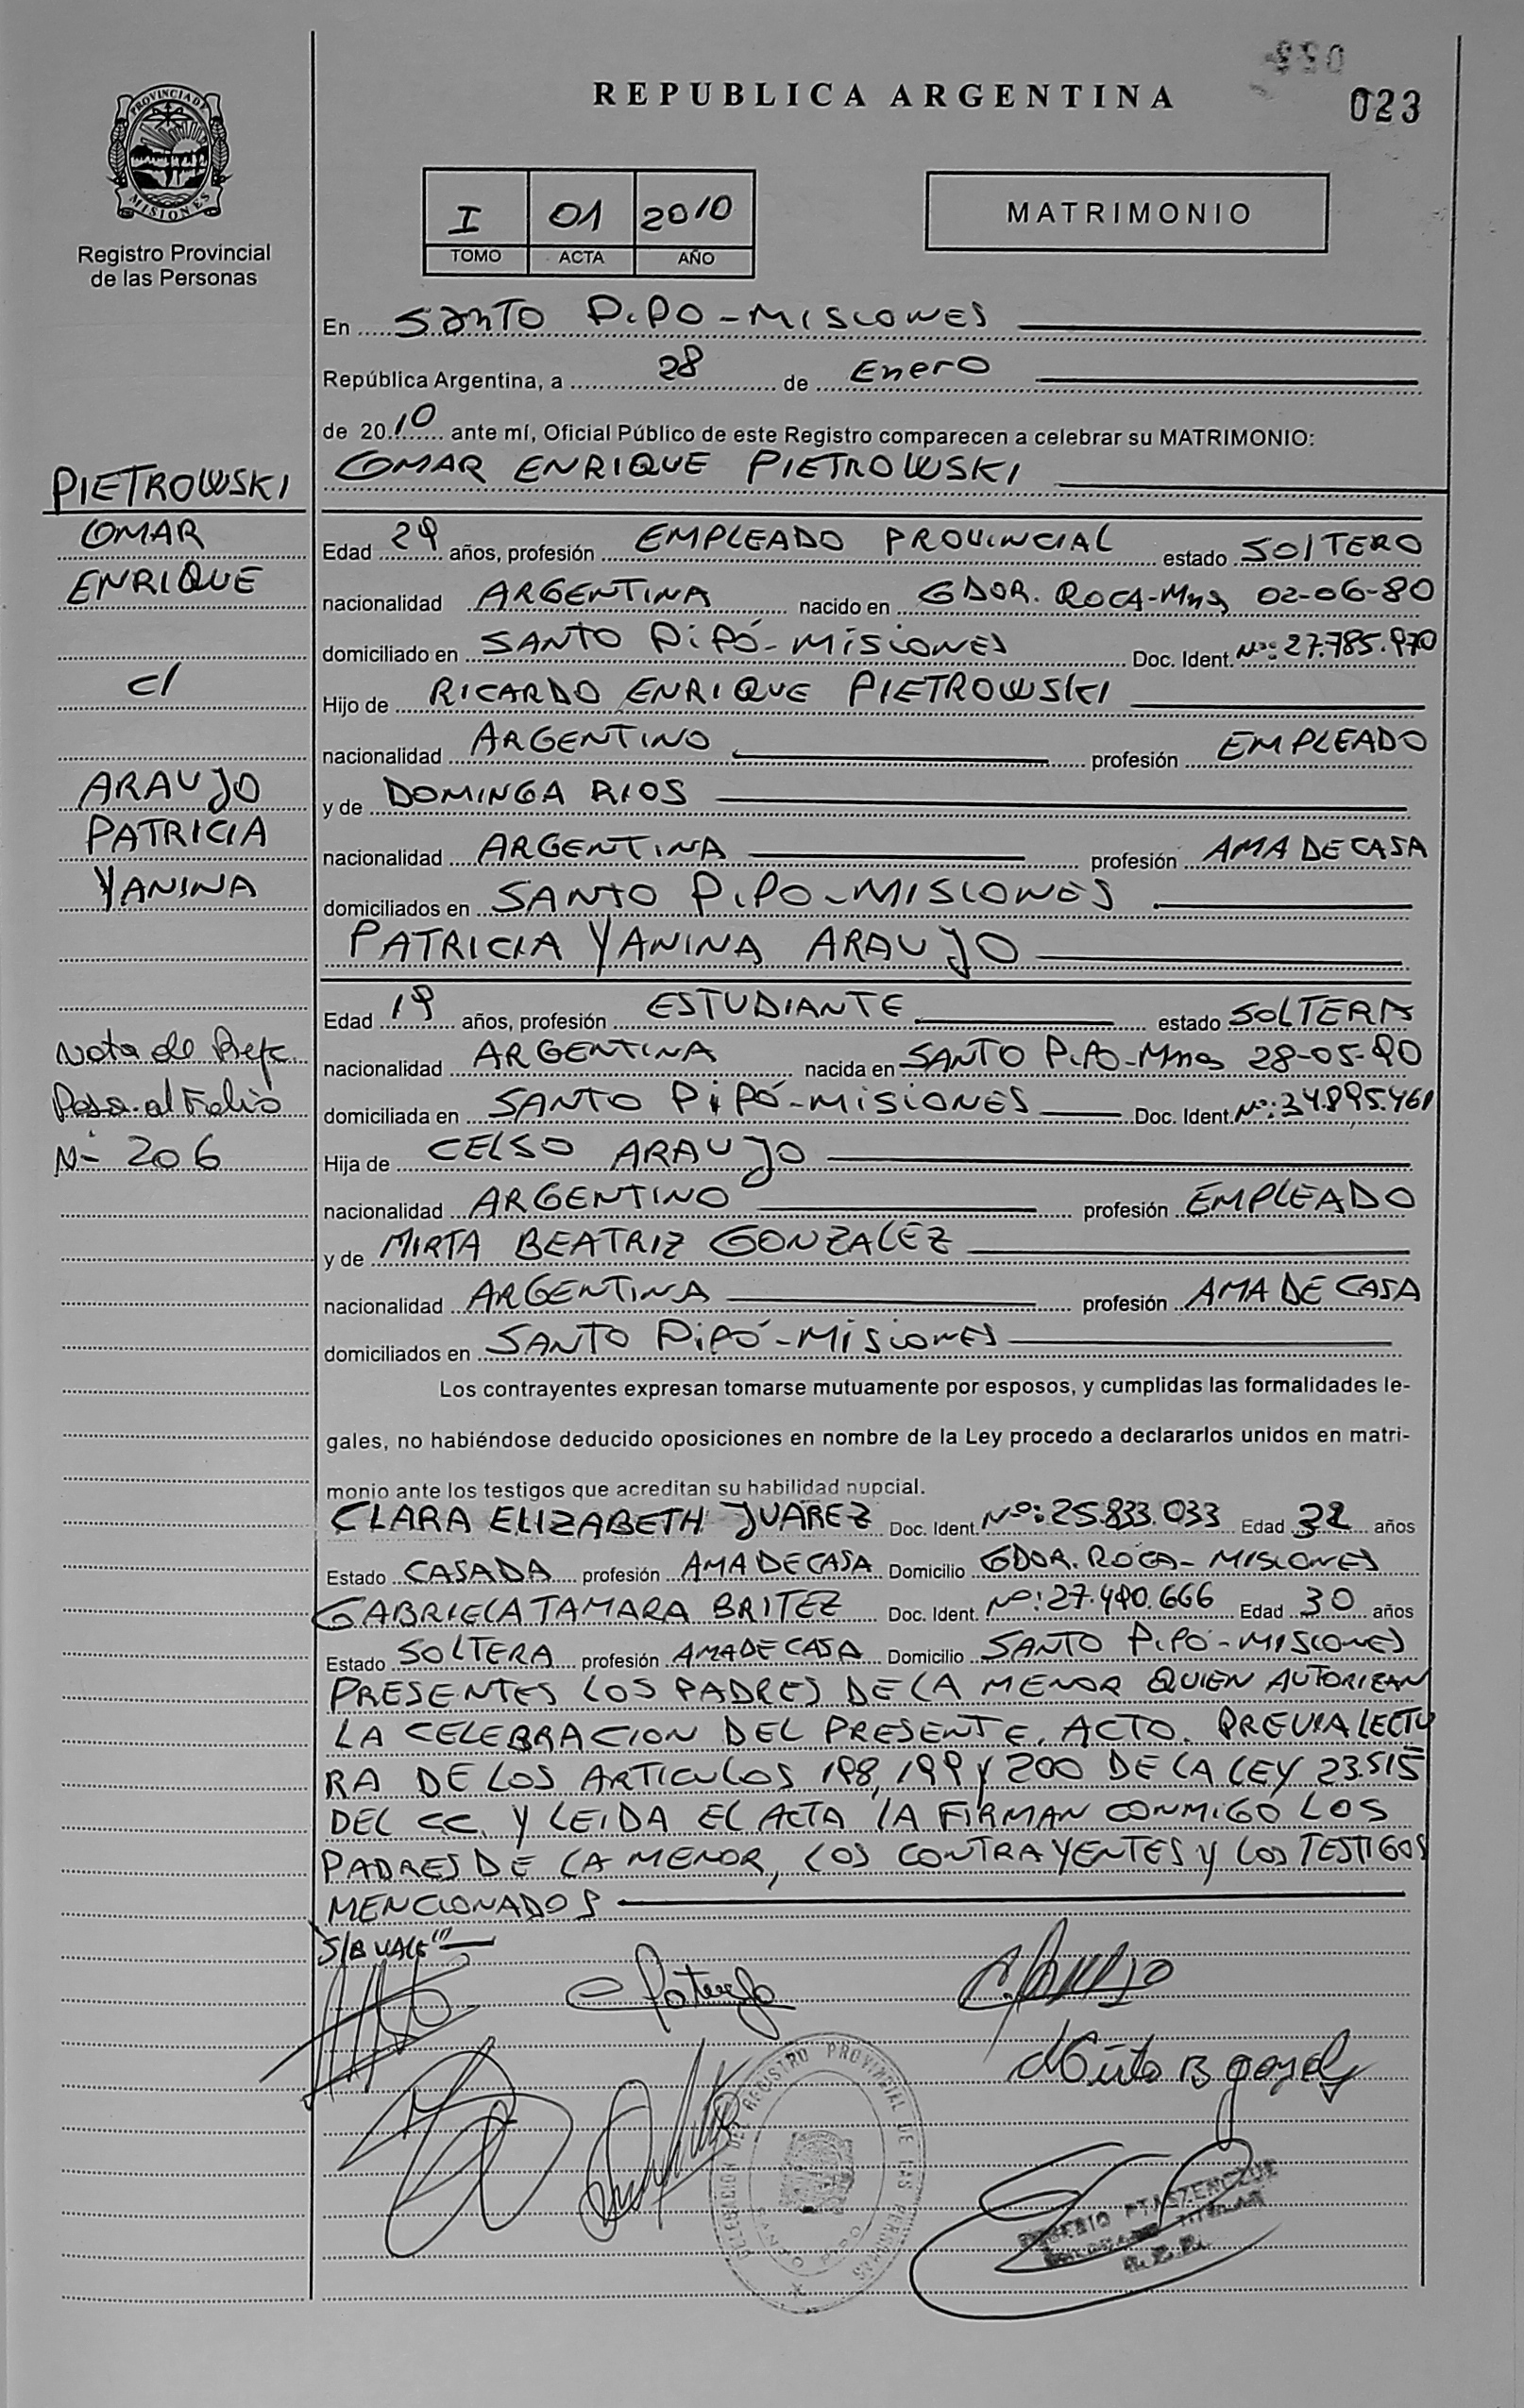 023
REPUBLICA ARGENTINA
PROVINCIA DE
MISIONES
Registro Provincial
de las Personas
I 01 2010
TOMO ACTA AÑO
MATRIMONIO
En SANTO PiPO - MISIONES
República Argentina, a 28 de Enero
de 2010 ante mí, Oficial Público de este Registro comparecen a celebrar su MATRIMONIO:
OMAR ENRIQUE PIETROWSKI
PIETROWSKI
OMAR
ENRIQUE
c/
ARAUJO
PATRICIA
YANINA
Nota de
Pasa al Folio
Nº 206
Edad 29 años, profesión EMPLEADO PROVINCIAL estado SOLTERO
nacionalidad ARGENTINA nacido en GDOR. ROCA-Mnes 02-06-80
domiciliado en SANTO PiPÓ - MiSiONES Doc. Ident. Nº: 27.785.970
Hijo de RICARDO ENRIQUE PIETROWSKI
nacionalidad ARGENTINO profesión EMPLEADO
y de DOMINGA RIOS
nacionalidad ARGENTINA profesión AMA DE CASA
domiciliados en SANTO PiPO - MISIONES
PATRICIA YANINA ARAUJO
Edad 19 años, profesión ESTUDIANTE estado SOLTERA
nacionalidad ARGENTINA nacida en SANTO PiPO-Mnes 28-05-90
domiciliada en SANTO PiPÓ - MiSiONES Doc. Ident. Nº: 34.895.461
Hija de CELSO ARAUJO
nacionalidad ARGENTINO profesión EMPLEADO
y de MIRTA BEATRIZ GONZALEZ
nacionalidad ARGENTINA profesión AMA DE CASA
domiciliados en SANTO PiPÓ - MiSiONES
Los contrayentes expresan tomarse mutuamente por esposos, y cumplidas las formalidades le-
gales, no habiéndose deducido oposiciones en nombre de la Ley procedo a declararlos unidos en matri-
monio ante los testigos que acreditan su habilidad nupcial.
CLARA ELIZABETH JUAREZ Doc. Ident. Nº: 25.833.033 Edad 32 años
Estado CASADA profesión AMA DE CASA Domicilio GDOR. ROCA - MISIONES
GABRIELA TAMARA BRITEZ Doc. Ident. Nº: 27.490.666 Edad 30 años
Estado SOLTERA profesión AMA DE CASA Domicilio SANTO PiPO - MISIONES
PRESENTES LOS PADRES DE LA MENOR QUIEN AUTORIZAN
LA CELEBRACION DEL PRESENTE ACTO. PREVIA LECTU
RA DE LOS ARTICULOS 198, 199 Y 200 DE LA LEY 23.515
DEL CC. Y LEIDA EL ACTA LA FIRMAN CONMIGO LOS
PADRES DE LA MENOR, LOS CONTRAYENTES Y LOS TESTIGOS
MENCIONADOS
S/B VALE
DELEGACION DEL REGISTRO PROVINCIAL DE LAS PERSONAS
SANTO PIPO